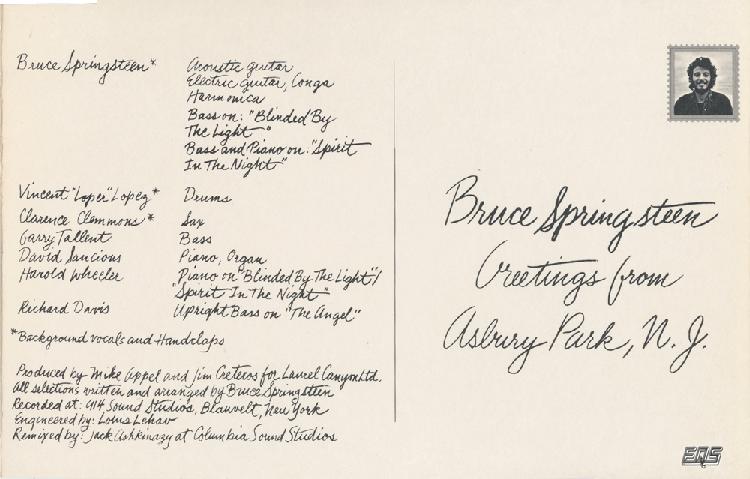 Bruce Springsteen* Acoustic guitar
Electric guitar, Conga
Harmonica
Bass on: "Blinded By
The Light"
Bass and Piano on: "Spirit
In The Night"
Vincent "Loper" Lopez* Drums
Clarence Clemmons* Sax
Garry Tallent Bass
David Sancious Piano, Organ
Harold Wheeler Piano on "Blinded By The Light"/
"Spirit In The Night"
Richard Davis Upright Bass on "The Angel"
*Background vocals and Handclaps
Produced by Mike Appel and Jim Cretecos for Laurel Canyon Ltd.
All selections written and arranged by Bruce Springsteen
Recorded at: 914 Sound Studios, Blauvelt, New York
Engineered by: Louis Lahav
Remixed by: Jack Ashkinazy at Columbia Sound Studios
Bruce Springsteen
Greetings from
Asbury Park, N. J.